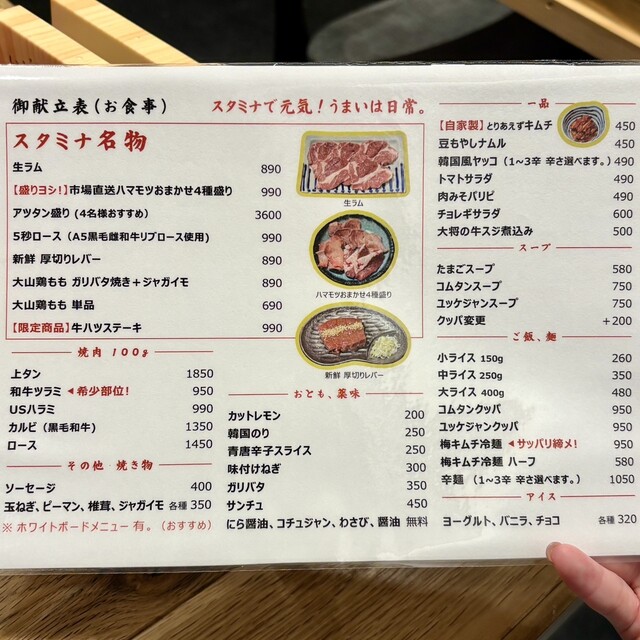 御献立表(お食事)
スタミナで元気!うまいは日常。
スタミナ名物
生ラム 890
【盛りヨシ!】市場直送ハマモツおまかせ4種盛り 990
アツタン盛り (4名様おすすめ) 3600
5秒ロース (A5黒毛雌和牛リブロース使用) 990
新鮮 厚切りレバー 890
大山鶏もも ガリバタ焼き+ジャガイモ 890
大山鶏もも 単品 690
【限定商品】牛ハツステーキ 990
生ラム
ハマモツおまかせ4種盛り
新鮮 厚切りレバー
焼肉 100g
上タン 1850
和牛ツラミ ◀希少部位! 950
USハラミ 990
カルビ (黒毛和牛) 1350
ロース 1450
その他 焼き物
ソーセージ 400
玉ねぎ、ピーマン、椎茸、ジャガイモ 各種 350
※ ホワイトボードメニュー 有。(おすすめ)
おとも、薬味
カットレモン 200
韓国のり 250
青唐辛子スライス 250
味付けねぎ 300
ガリバタ 350
サンチュ 450
にら醤油、コチュジャン、わさび、醤油 無料
一品
【自家製】とりあえずキムチ 450
豆もやしナムル 450
韓国風ヤッコ (1~3辛 辛さ選べます。) 490
トマトサラダ 490
肉みそパリピ 490
チョレギサラダ 600
大将の牛スジ煮込み 500
スープ
たまごスープ 580
コムタンスープ 750
ユッケジャンスープ 750
クッパ変更 +200
ご飯、麺
小ライス 150g 260
中ライス 250g 350
大ライス 400g 480
コムタンクッパ 950
ユッケジャンクッパ 950
梅キムチ冷麺 ◀サッパリ締メ! 950
梅キムチ冷麺 ハーフ 580
辛麺 (1~3辛 辛さ選べます。) 1050
アイス
ヨーグルト、バニラ、チョコ 各種 320